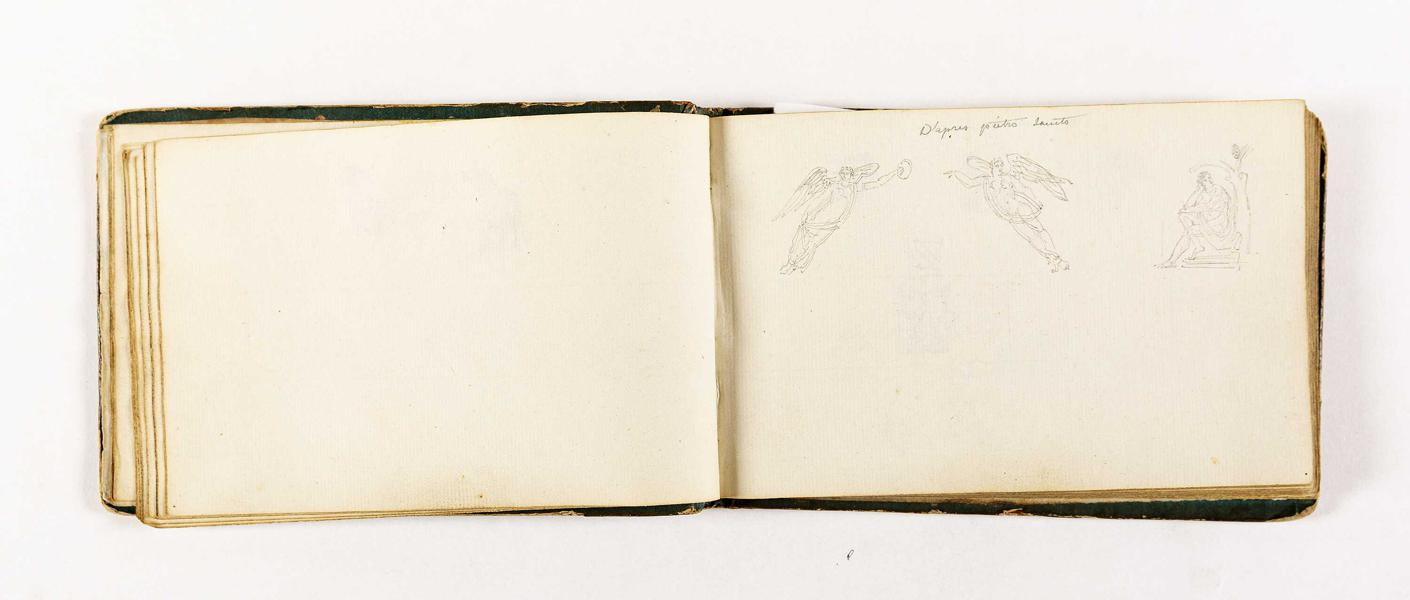 D'après pietro Sancto